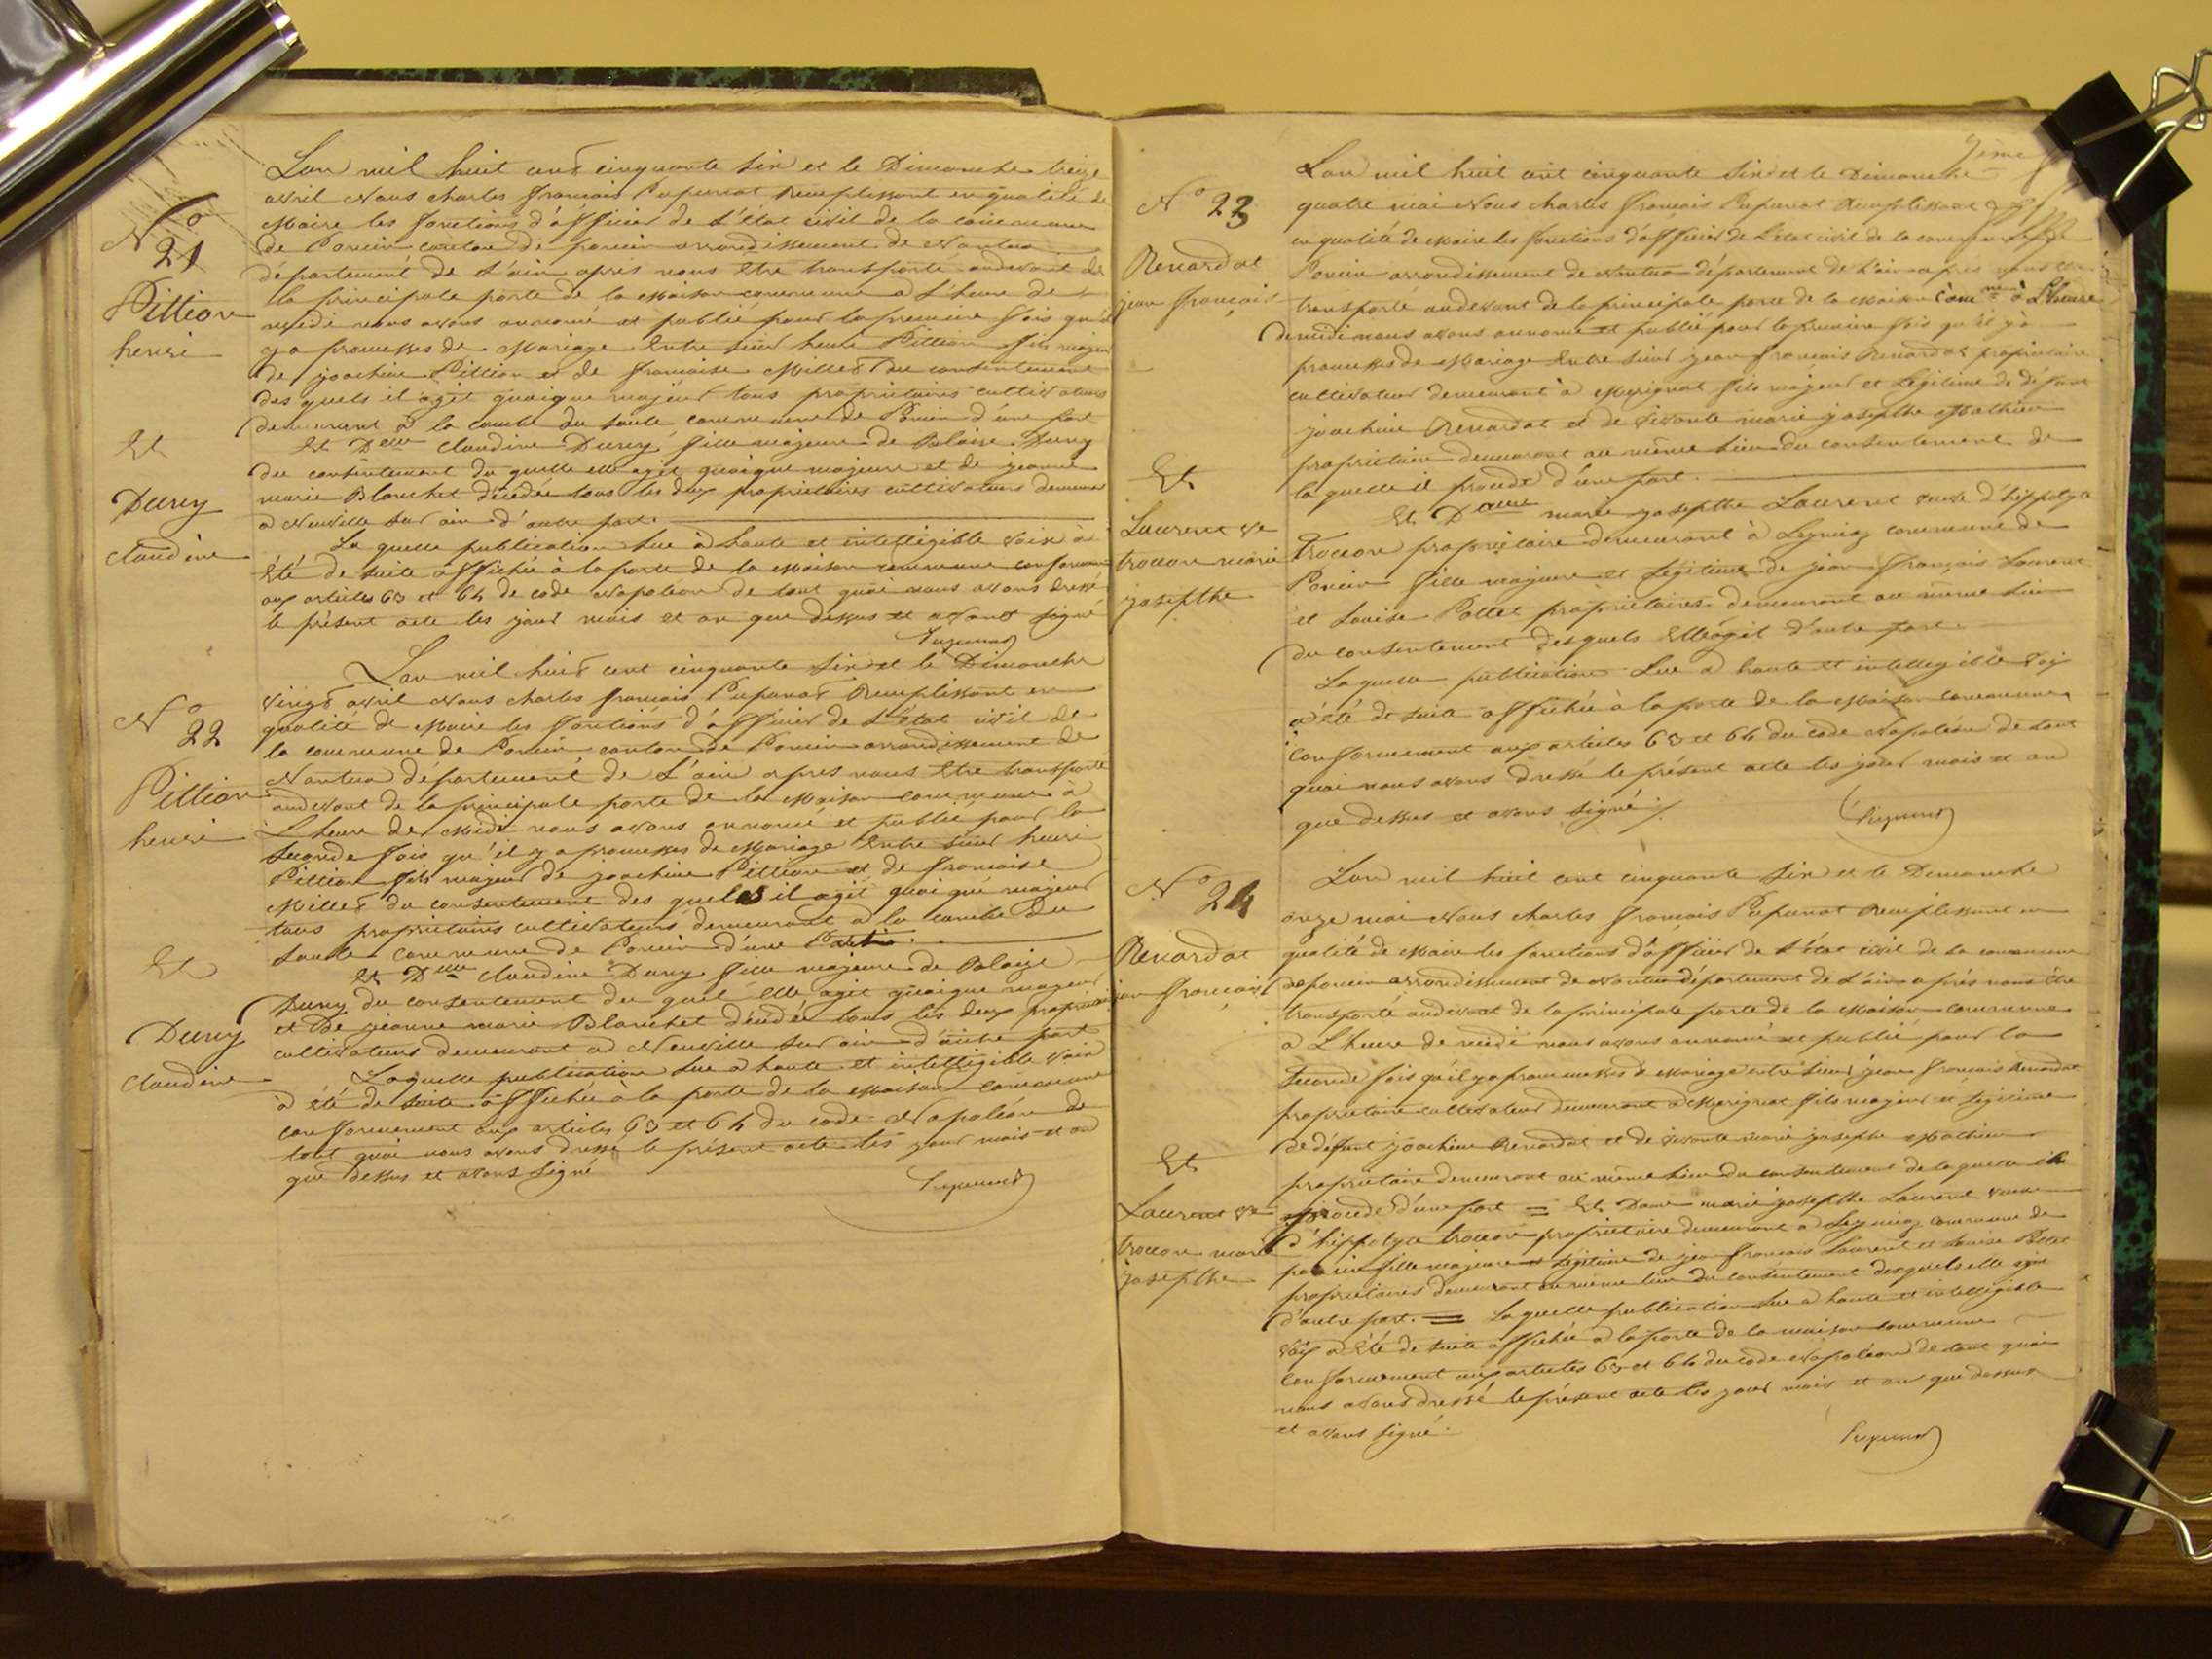 No
21
Pittion
henri
Et
Duny
claudine
L'an mil huit cent cinquante six et le Dimanche treize
avril Nous charles françois Pupunat Remplissant en qualité de
Maire les fonctions d'officier de L'état civil de la commune
de Poncin canton de poncin arrondissement de Nantua
département de L'ain apres nous Etre transporté audevant de
la principale porte de la Maison commune a L'heure de
midi nous avons annoncé et publié pour la premiere fois qu'il
y a promesses de Mariage Entre sieur henri Pittion fils majeur
de joachim Pittion et de francoise Millet du consentement
des quels il agit quoique majeur tous proprietaires cultivateurs
demeurant à la combe du saule commune de Poncin d'une part
Et Delle claudine Duny fille majeure de Blaise Duny
du consentement du quelle elle agit quoique majeure et de jeanne
marie Blanchet décédée tous les deux proprietaires cultivateurs demeurant
a Neuville sur ain d'autre part.
La quelle publication Lue à haute et intelligible voix à
Eté de suite affichée à la porte de la Maison commune conformement
aux articles 63 et 64 de code Napoléon de tout quoi nous avons dressé
le présent acte les jour mois et an que dessus et avons signé
Pupunat
No
22
Pittion
henri
Et
Duny
claudine
L'an mil huit cent cinquante six et le Dimanche
vingt avril Nous charles françois Pupunat Remplissant en
qualité de Maire les fonctions d'officier de L'état civil de
la commune de Poncin canton de Poncin arrondissement de
Nantua département de L'ain apres nous Etre transporté
audevant de la principale porte de la Maison commune a
L'heure de Midi nous avons annoncé et publié pour la
seconde fois qu'il y a promesses de Mariage Entre sieur henri
Pittion fils majeur de joachim Pittion et de francoise
Millet du consentement des quels il agit quoi que majeur
tous proprietaires cultivateurs demeurant a la combe du
saule commune de Poncin d'une Part.
Et Delle claudine Duny fille majeure de Blaize
Duny du consentement du quel Elle agit quoique majeur
et de jeanne marie Blanchet décédée tous les deux proprietaires
cultivateurs demeurant a Neuville sur ain d'autre part
Laquelle publication Lue a haute et intelligible voix
à été de suite affichée à la porte de la Maison commune
conformement aux articles 63 et 64 du code Napoléon de
tout quoi nous avons dressé le présent acte les jour mois et an
que dessus et avons signé
Pupunat
No 23
Renardat
jean françois
Et
Laurent ve
trocon marie
josephte
L'an mil huit cent cinquante six et le Dimanche
quatre mai Nous charles françois Pupunat Remplissant
en qualité de Maire les fonctions d'officier de L'état civil de la commune
Poncin arrondissement de Nantua département de L'ain après nous Etre
transporté audevant de la principale porte de la Maison comne à L'heure
de midi nous avons annoncé et publié pour la premiere fois qu'il y a
promesses de Mariage Entre sieur jean françois Renardat proprietaire
cultivateur demeurant à Merignat fils majeur et Légitime de défunt
joachim Renardat et de vivante marie josephte Mathieu
proprietaire demeurant au même lieu du consentement de
la quelle il procede d'une part.
Et Dame marie josephte Laurent veuve d'hippolyte
Trocon proprietaire demeurant à Leymiaz commune de
Poncin fille majeure et Légitime de jean françois Laurent
et Louise Pottet proprietaires demeurant au même lieu
du consentement des quels Elle agit d'autre part.
Laquelle publication Lue a haute et intelligible voix
a été de suite affichée à la porte de la Maison commune
conformement aux articles 63 et 64 du code Napoléon de tout
quoi nous avons dressé le présent acte les jour mois et an
que dessus et avons signé
Pupunat
No 24
Renardat
jean françois
Et
Laurent ve
trocon marie
josephte
L'an mil huit cent cinquante six et le Dimanche
onze mai Nous charles françois Pupunat Remplissant en
qualité de Maire les fonctions d'officier de L'état civil de la commune
de poncin arrondissement de Nantua département de L'ain après nous Etre
transporté audevant de la principale porte de la Maison commune
a L'heure de midi nous avons annoncé et publié pour la
seconde fois qu'il y a promesses de Mariage entre sieur jean françois Renardat
proprietaire cultivateur demeurant a Merignat fils majeur et Légitime
de défunt joachim Renardat et de vivante marie josephte Mathieu
proprietaire demeurant au même lieu du consentement de la quelle il
procede d'une part = Et Dame marie josephte Laurent veuve
d'hippolyte trocon proprietaire demeurant a Leymiaz commune de
poncin fille majeure et Légitime de jean françois Laurent et Louise Pottet
proprietaires demeurant au même lieu du consentement desquels elle agit
d'autre part. = La quelle publication Lue a haute et intelligible
voix a Eté de suite affichée a la porte de la maison commune
conformement aux articles 63 et 64 du code Napoléon de tout quoi
nous avons dressé le présent acte les jour mois et an que dessus
et avons signé.
Pupunat